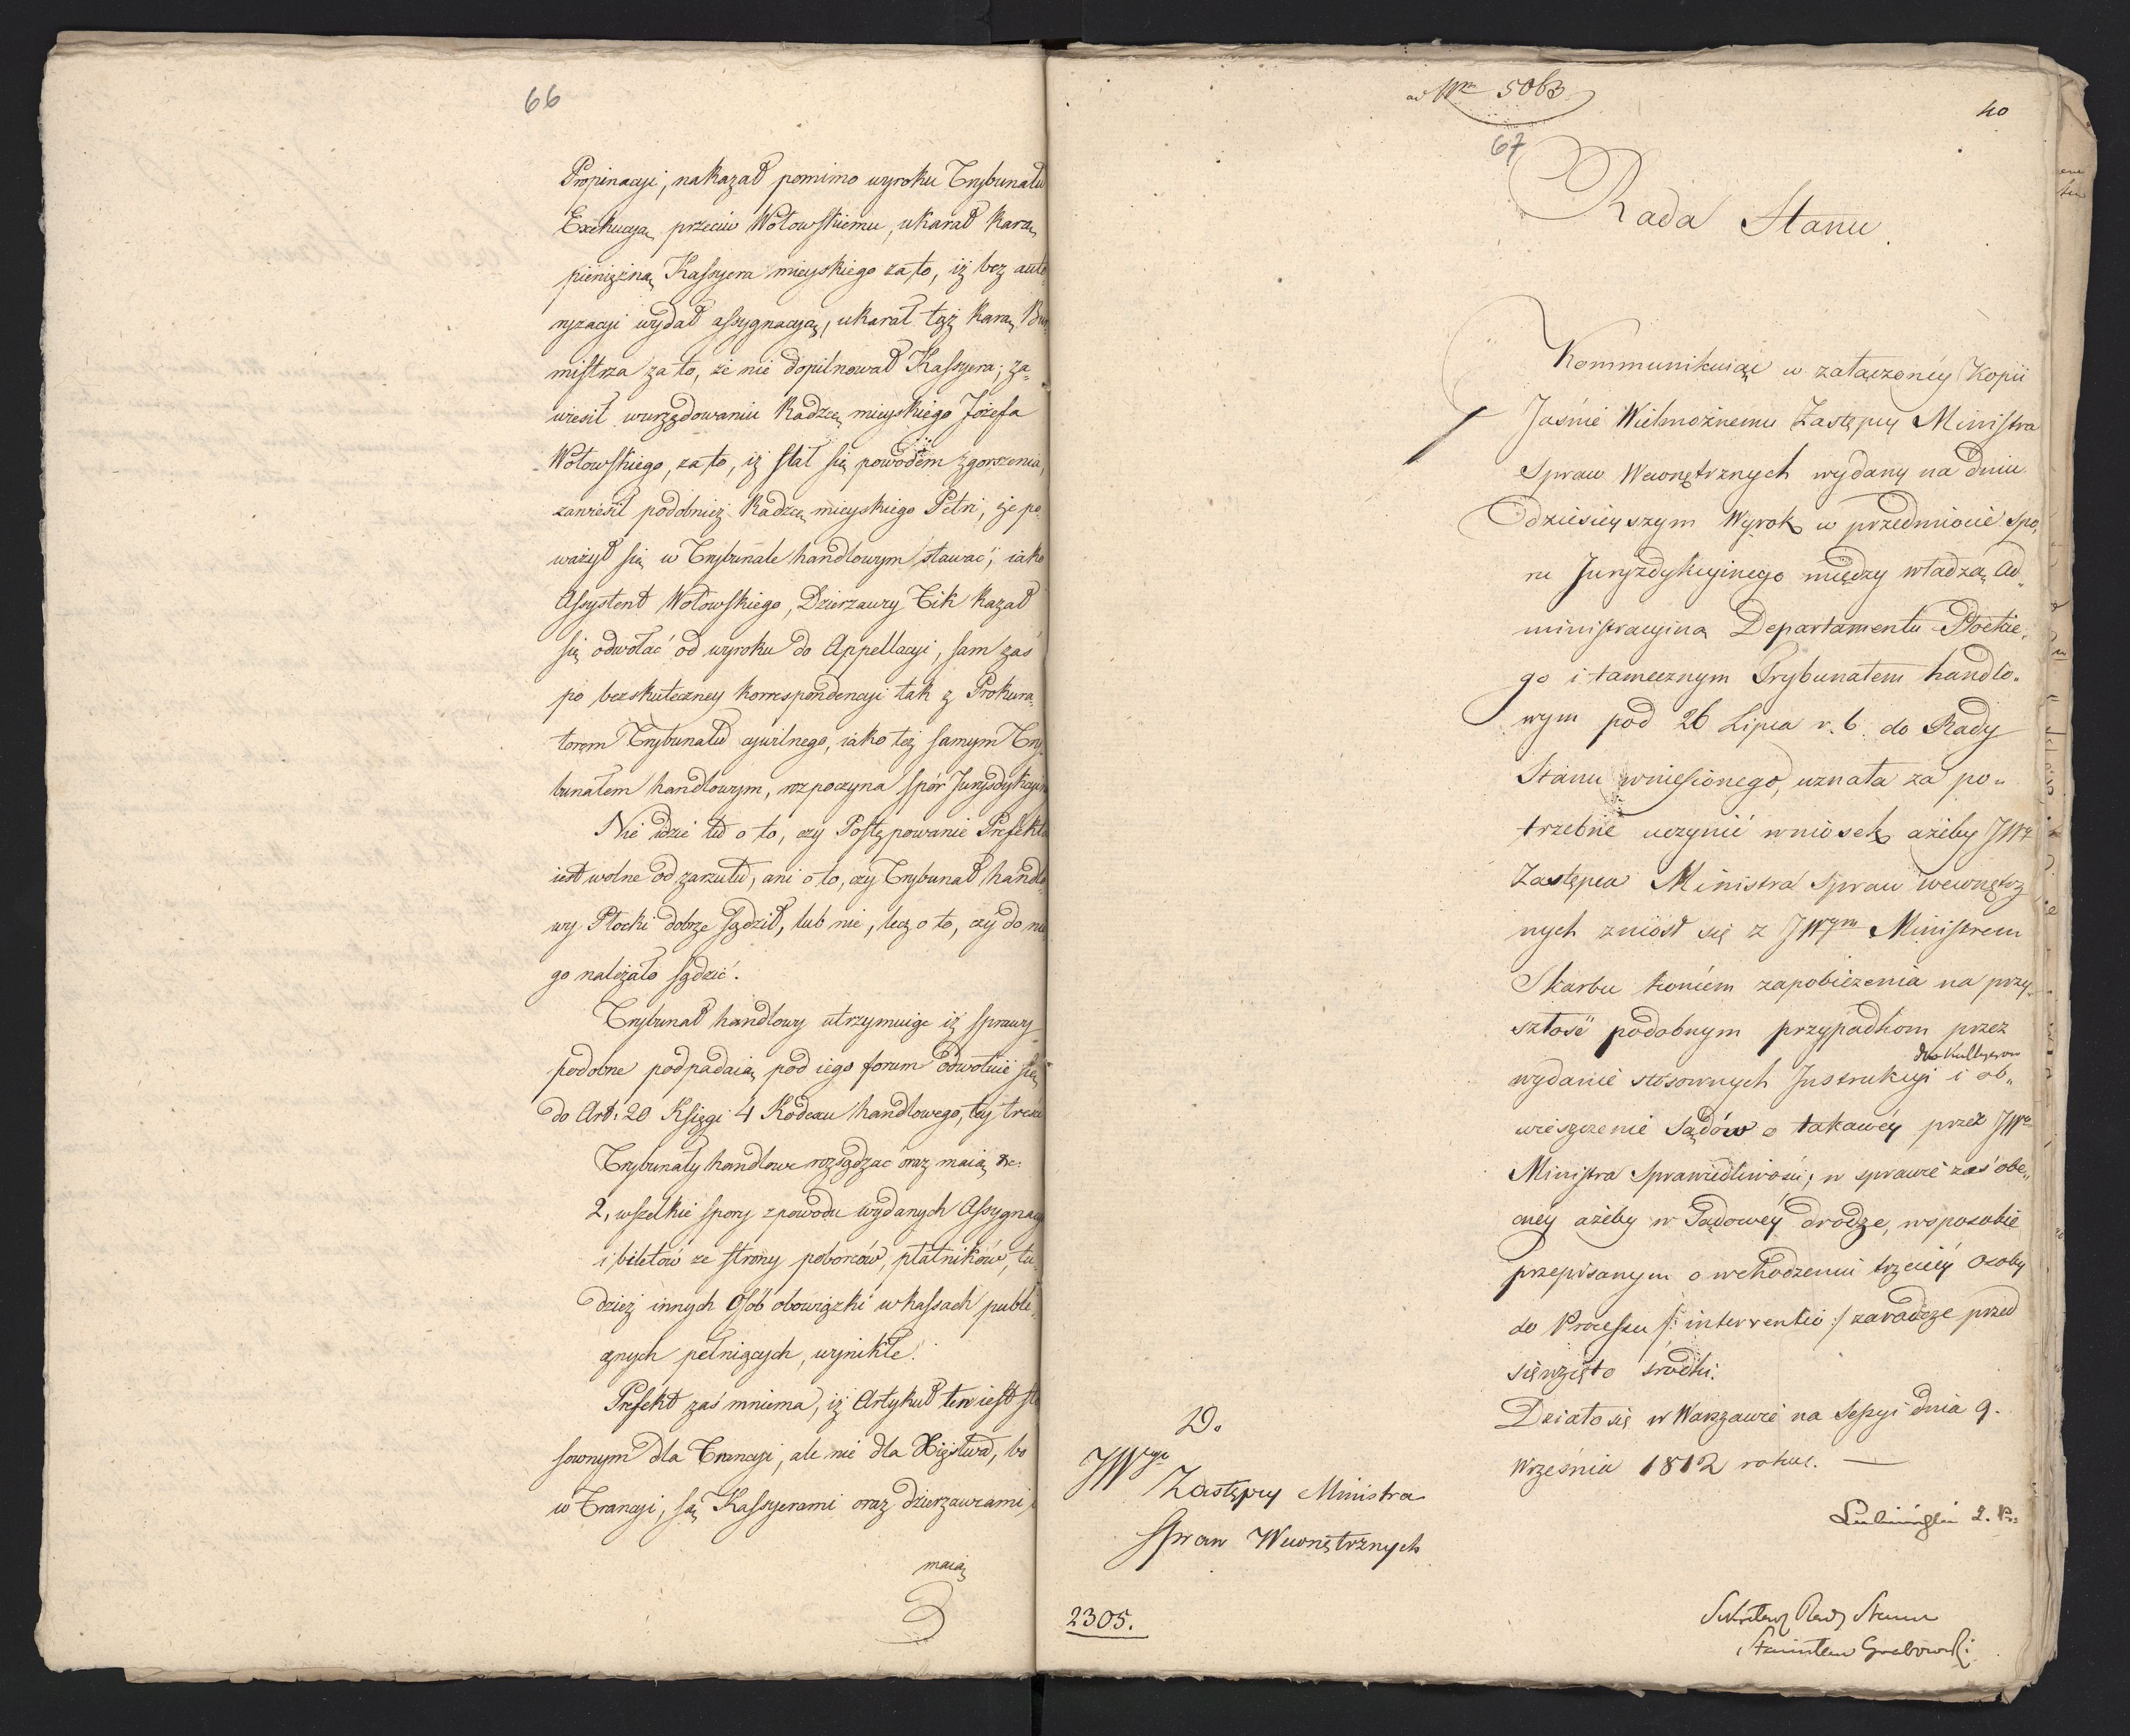 66
Propinacyi, nakazał pomimo wyroku Trybunału
Exekucyą przeciw Wołowskiemu, ukarał karą
pieniężną Kassyera mieyskiego za to, iż bez auto
ryzacyi wydał assygnacyą, ukarał tąż karą Bur
mistrza za to, że nie dopilnował Kassyera; za„
wiesił w urzędowaniu Radzcę mieyskiego Józefa
Wołowskiego, za to, iż stał się powodem zgorszenia,
zawiesił podobnież Radzcę mieyskiego Petri, że po
ważył się w Trybunale handlowym stawać, iako
Assystent Wołowskiego, Dzierzawcy Tik kazał
się odwołać od wyroku do Appellacyi, sam zaś
po bezskuteczney korrespondencyi tak z Prokura
torem Trybunału cywilnego, iako też samym Try
bunałem handlowym, rozpoczyna spór Jurysdykcyin
Nie idzie tu o to, czy Postępowanie Prefekta
iest wolne od zarzutu, ani o to, czy Trybunał handlo
wy Płocki dobrze sądził, lub nie, lecz o to, czy do nie
go należało sądzić.
Trybunał handlowy utrzymuiąc iż sprawy
podobne podpadaią pod iego forum odwołuie się
do Art: 20 Księgi 4 Kodexu handlowego, tey treści
Trybunały handlowe rozsądzac oraz maią &c:
2, wszelkie spory z powodu wydanych Assygnacyi
i biletów ze strony poborców, płatników, tu„
dzież innych Osób obowiązki w kassach publi„
cznych pełniących, wynikłe.
Prefekt zaś mniema, iż Artykuł ten iest sto
sownym dla Francyi, ale nie dla Xięstwa, bo
w Francyi, są Kassyerami oraz dzierzawcami,
maią
ad Nm 5063
40
67
Rada Stanu.
Kommunikuiąc w załączonéy Kopii
Jaśnie Wielmożnemu Zastępcy Ministra
Spraw Wewnętrznych wydany na dniu
dzisieyszym Wyrok w przedmiocie spo„
ru Juryzdykcyinego między władzą Ad„
ministracyiną Departamentu Płockie„
go i tamecznym Trybunałem handlo„
wym pod 26 Lipca r. b. do Rady
Stanu wniesionego, uznała za po„
trzebne uczynić wniosek ażeby JW
Zastępca Ministra Spraw wewnętrz
nych zniósł się z JWym Ministrem
Skarbu końcem zapobieżenia na przy„
szłość podobnym przypadkom przez
wydanie stosownych Instrukcyi i ob„
wieszczenie Sądów o takowéy przez JW
Ministra Sprawiedliwości; w sprawie zaś obe„
cney ażeby w Sądowéy drodze, w sposobie
przepisanym o wchodzeniu trzeciéy Osoby
do Processu /: interventio :/ zaradcze przed
sięwzięto środki.
Działo się w Warszawie na Sessyi dnia 9.
Września 1812 roku.
D.
JWgo
Zastępcy Ministra
Spraw Wewnętrznych
2305.
Sekretarz Rady Stanu
Stanisław Grabowski